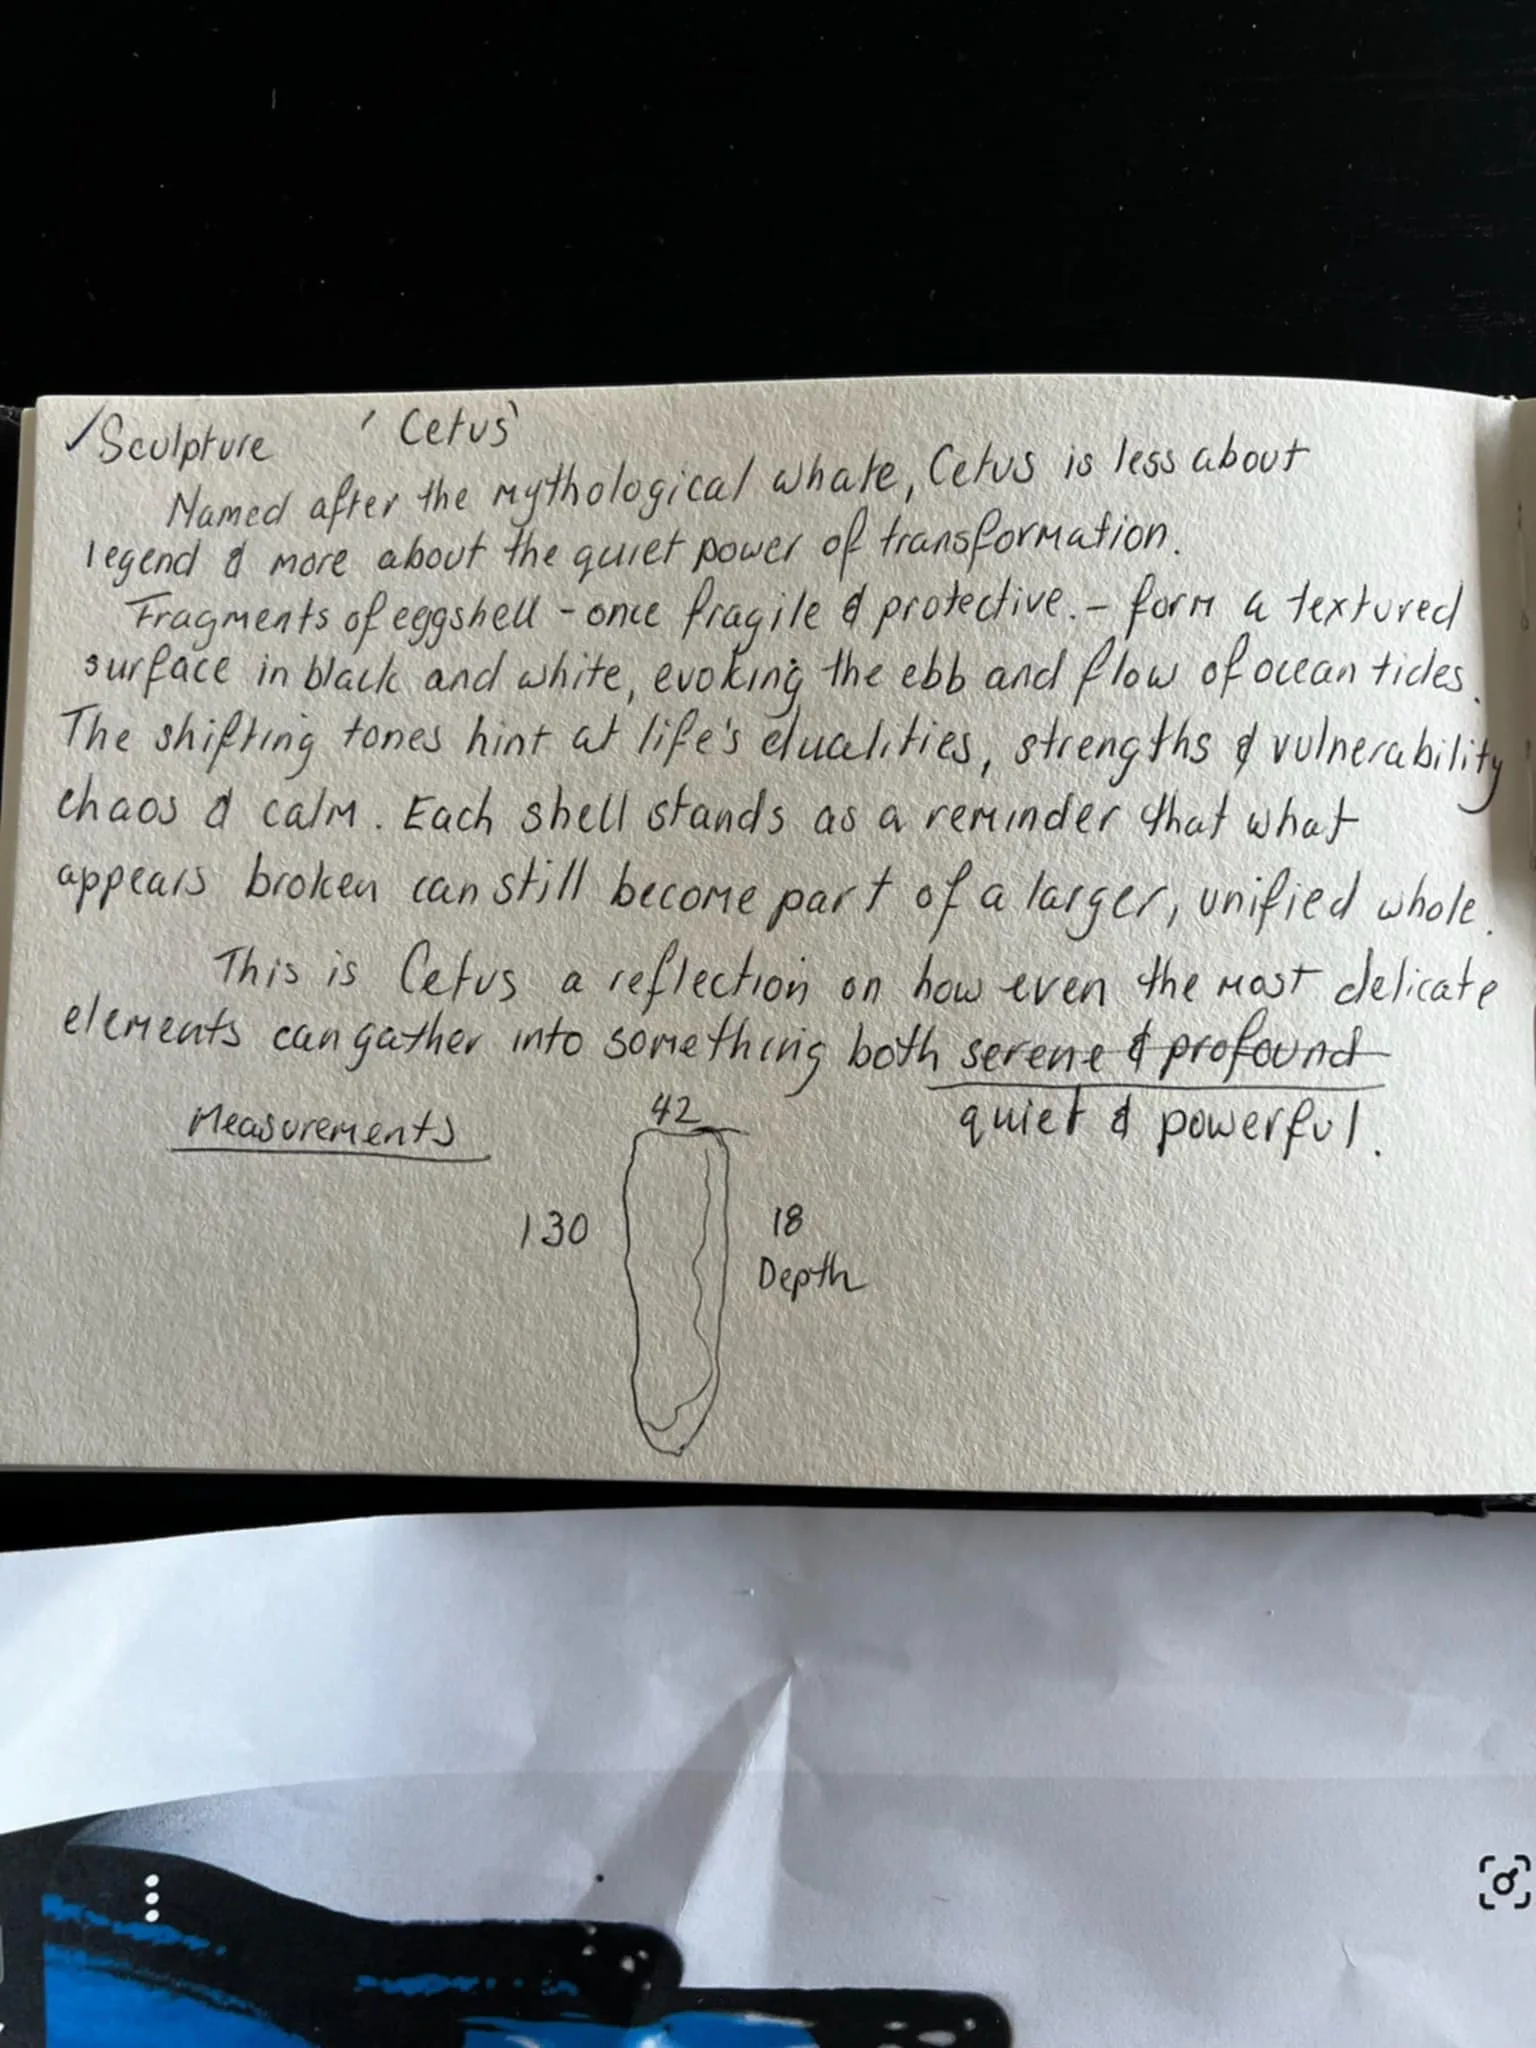 ✓Sculpture 'Cetus'
Named after the mythological whale, Cetus is less about
legend & more about the quiet power of transformation.
Fragments of eggshell - once fragile & protective. - form a textured
surface in black and white, evoking the ebb and flow of ocean tides.
The shifting tones hint at life's dualities, strengths & vulnerability
chaos & calm. Each shell stands as a reminder that what
appears broken can still become part of a larger, unified whole.
This is Cetus a reflection on how even the most delicate
elements can gather into something both serene & profound
quiet & powerful.
Measurements
42
130
18
Depth